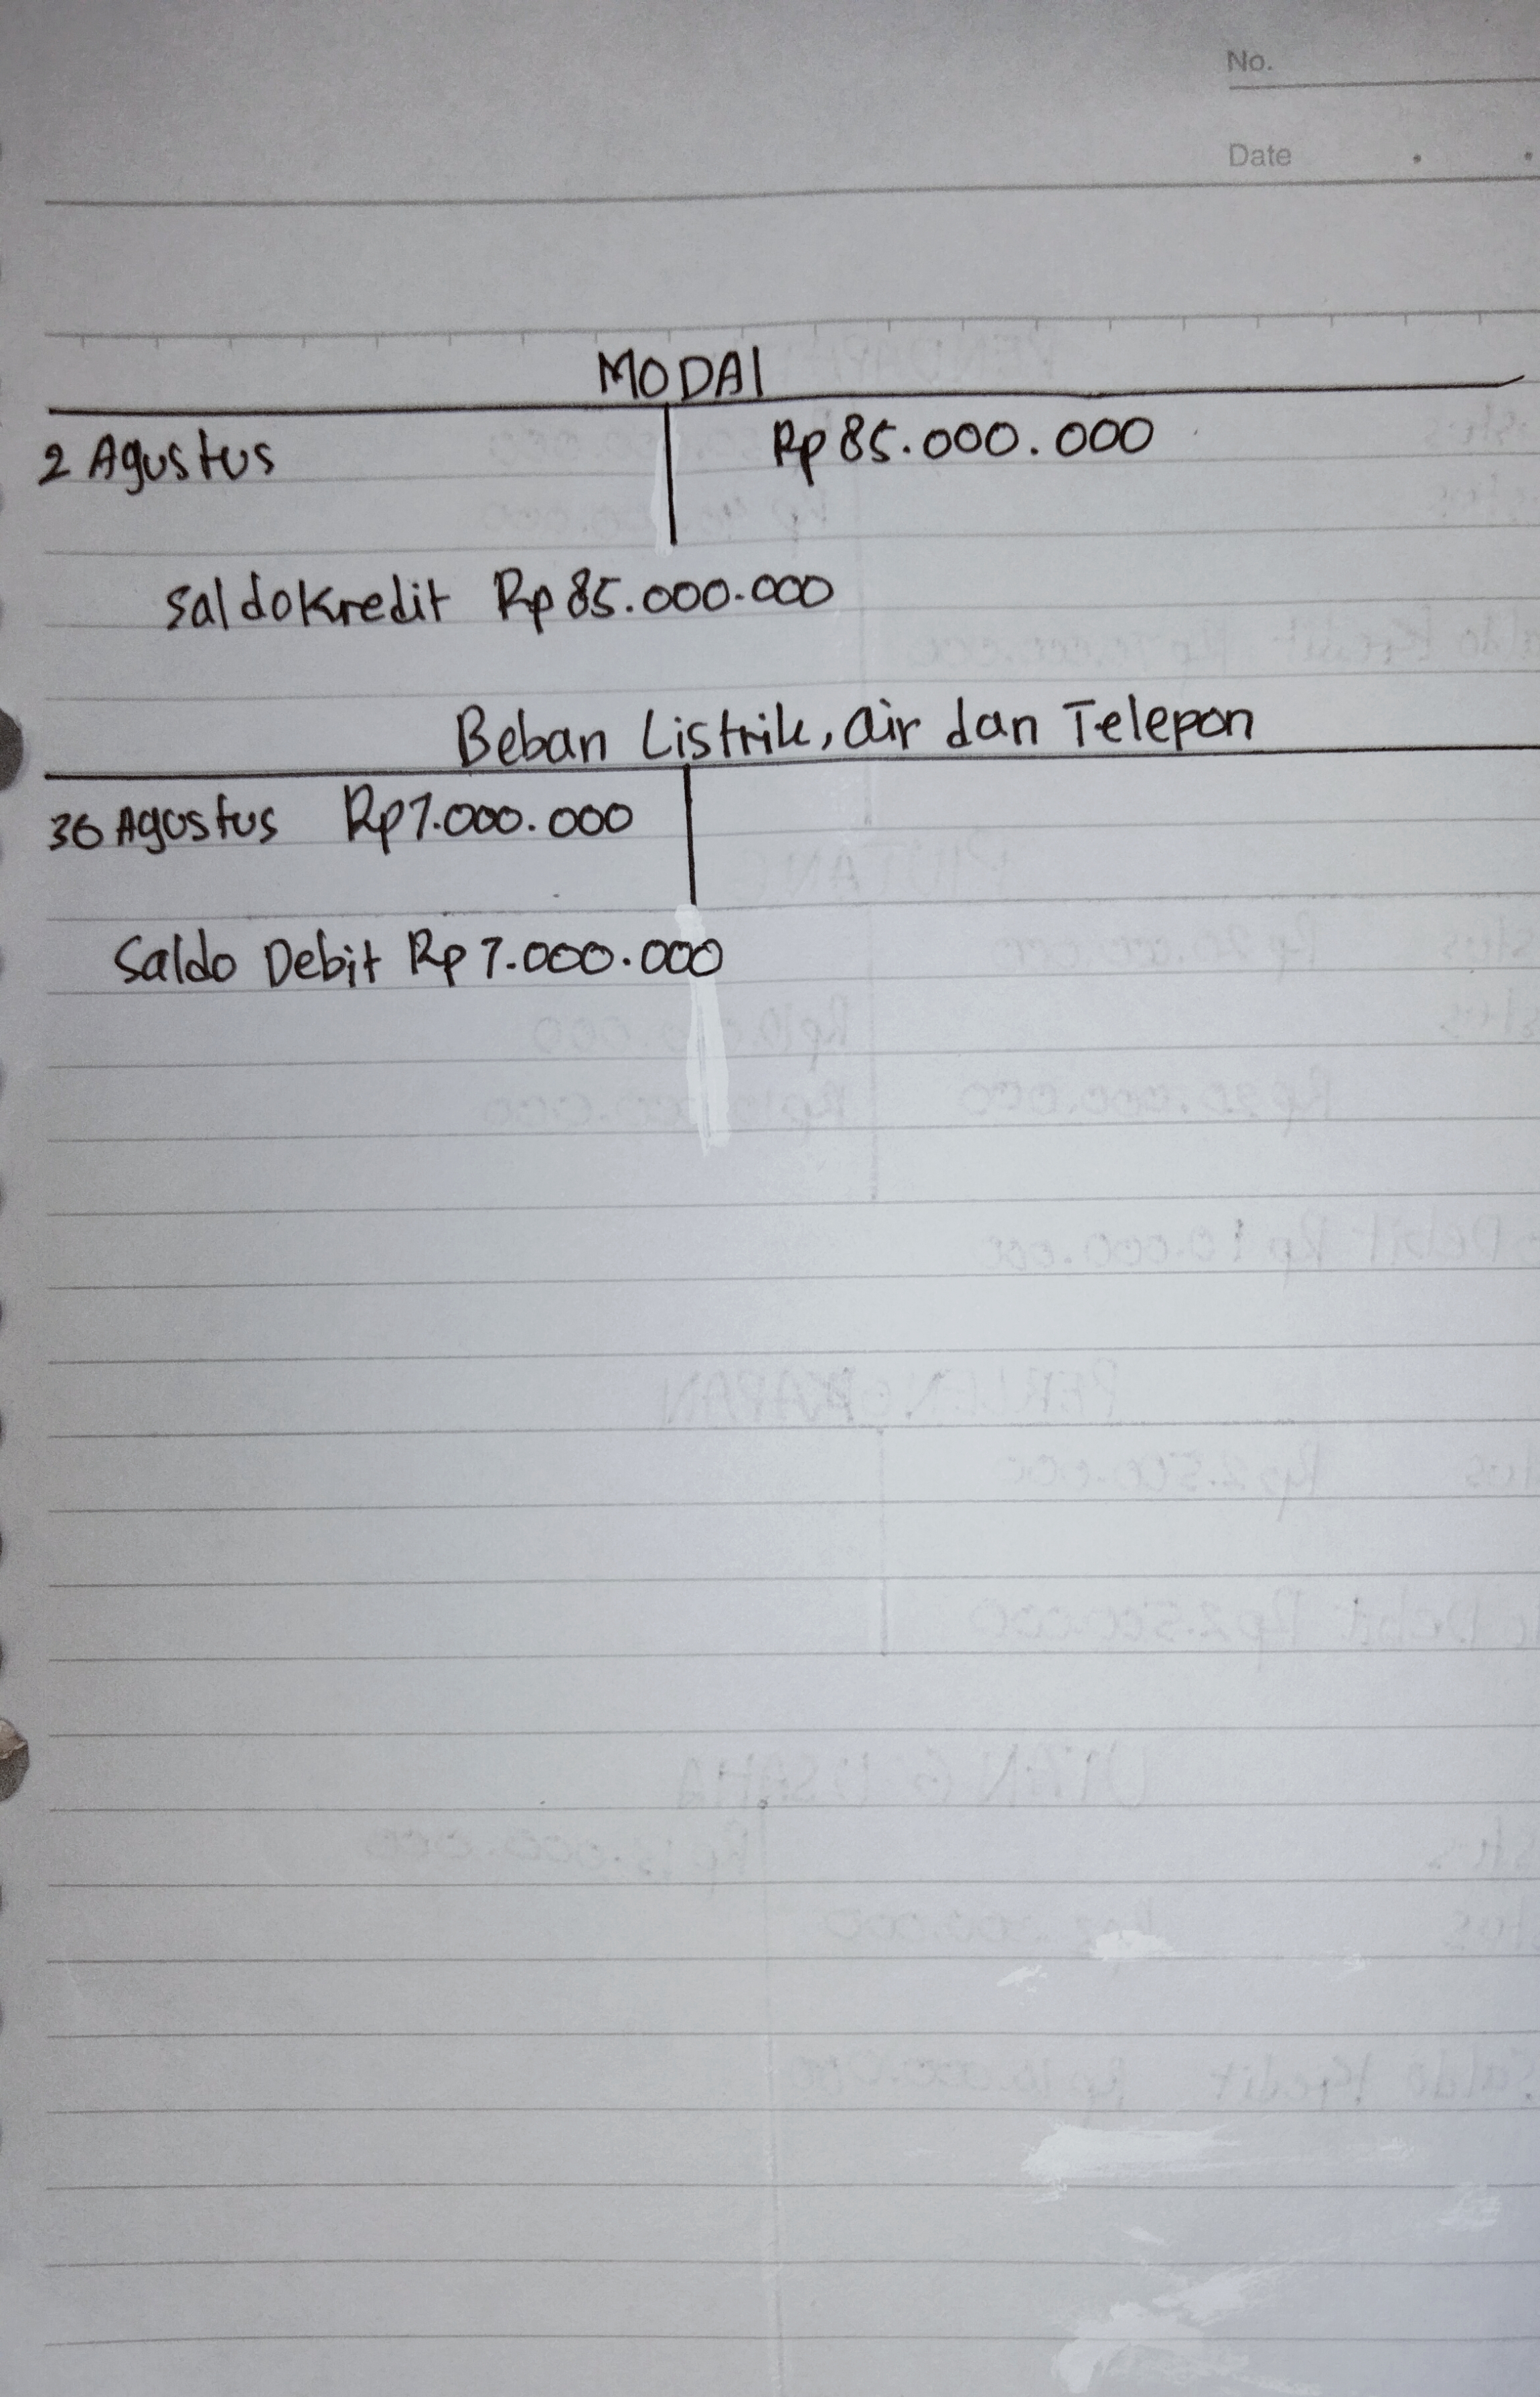 No.
Date
MODAl
2 Agustus Rp 85.000.000
Saldo Kredit Rp 85.000.000
Beban Listrik, air dan Telepon
30 Agustus Rp7.000.000
Saldo Debit Rp 7.000.000